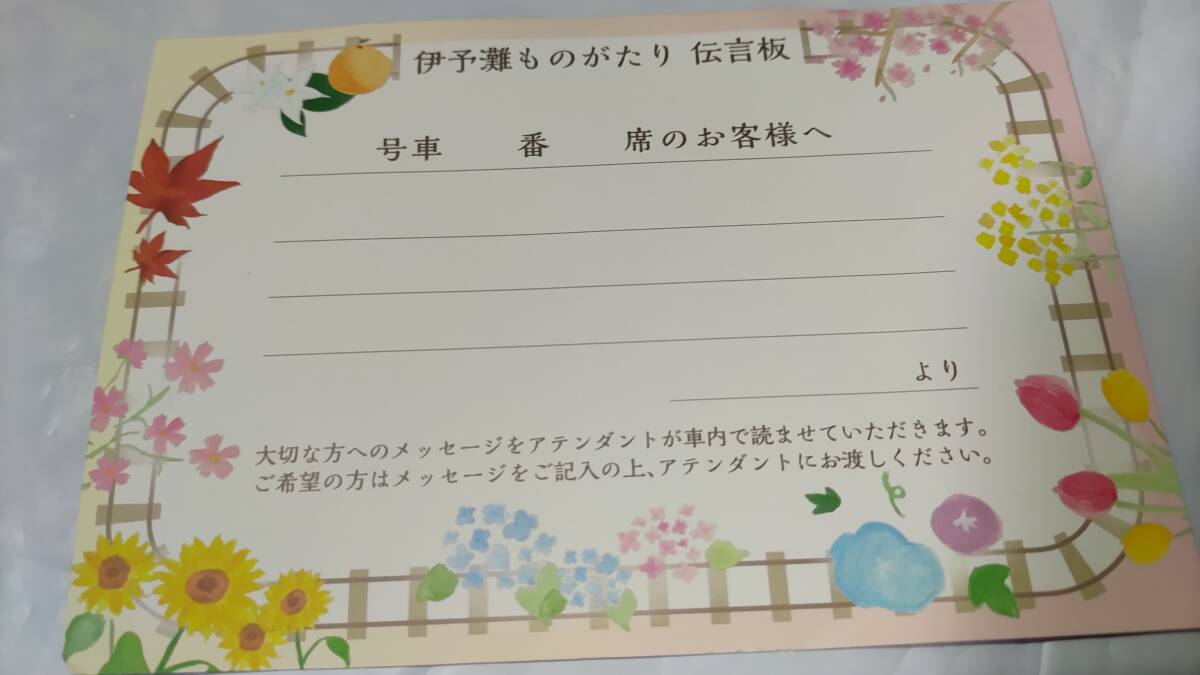 伊予灘ものがたり 伝言板
号車 番 席のお客様へ
より
大切な方へのメッセージをアテンダントが車内で読ませていただきます。
ご希望の方はメッセージをご記入の上、アテンダントにお渡しください。